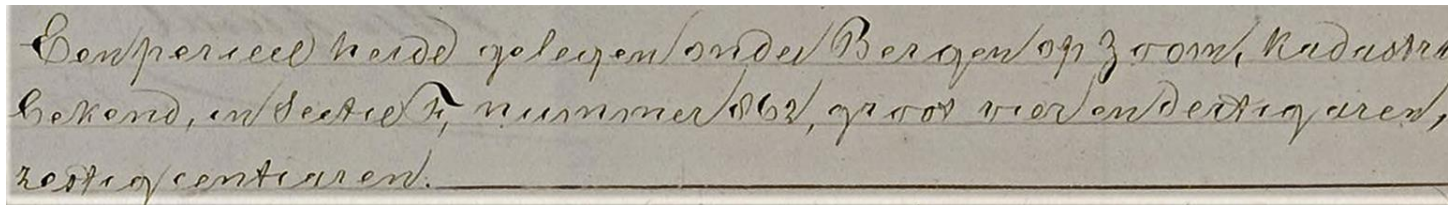 Een perceel heide gelegen onder Bergen op Zoom, kadastra
bekend, in Sectie F, nummer 862, groot vier en dertig aren,
zestig centiaren.